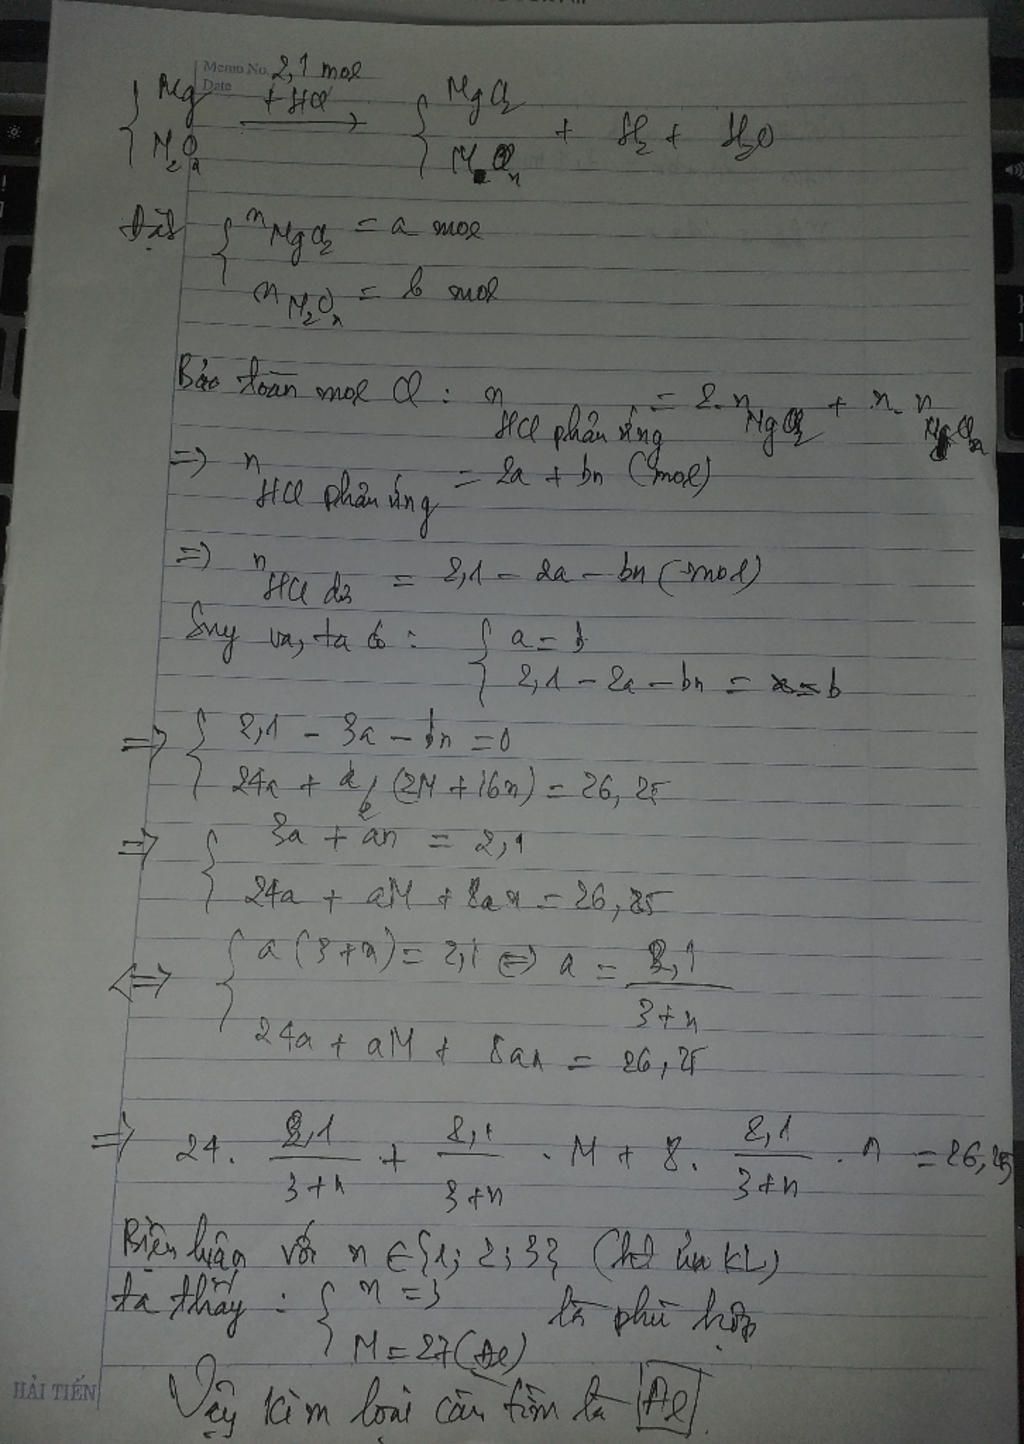 Memo No. 2,1 mol
Date
{ Mg + HCl → { MgCl2 + H2 + H2O
{ M2On { MCln
Đặt { nMgCl2 = a mol
{ nM2On = b mol
Bảo toàn mol Cl : nHCl phản ứng = 2. nMgCl2 + n. nMCln
=> nHCl phản ứng = 2a + bn (mol)
=> nHCl dư = 2,1 - 2a - bn (mol)
Suy ra, ta có : { a = b
{ 2,1 - 2a - bn = b
=> { 2,1 - 3a - bn = 0
{ 24a + a/2 (2M + 16n) = 26,25
=> { 3a + an = 2,1
{ 24a + aM + 8an = 26,25
<=> { a (3 + n) = 2,1 <=> a = 2,1 / 3+n
{ 24a + aM + 8an = 26,25
=> 24. 2,1 / 3+n + 2,1 / 3+n . M + 8. 2,1 / 3+n . n = 26,25
Biện luận với n ∈ {1; 2; 3} (hoá trị KL)
ta thấy : { n = 3
{ M = 27 (Al) là phù hợp
Vậy kim loại cần tìm là Al.
HẢI TIẾN